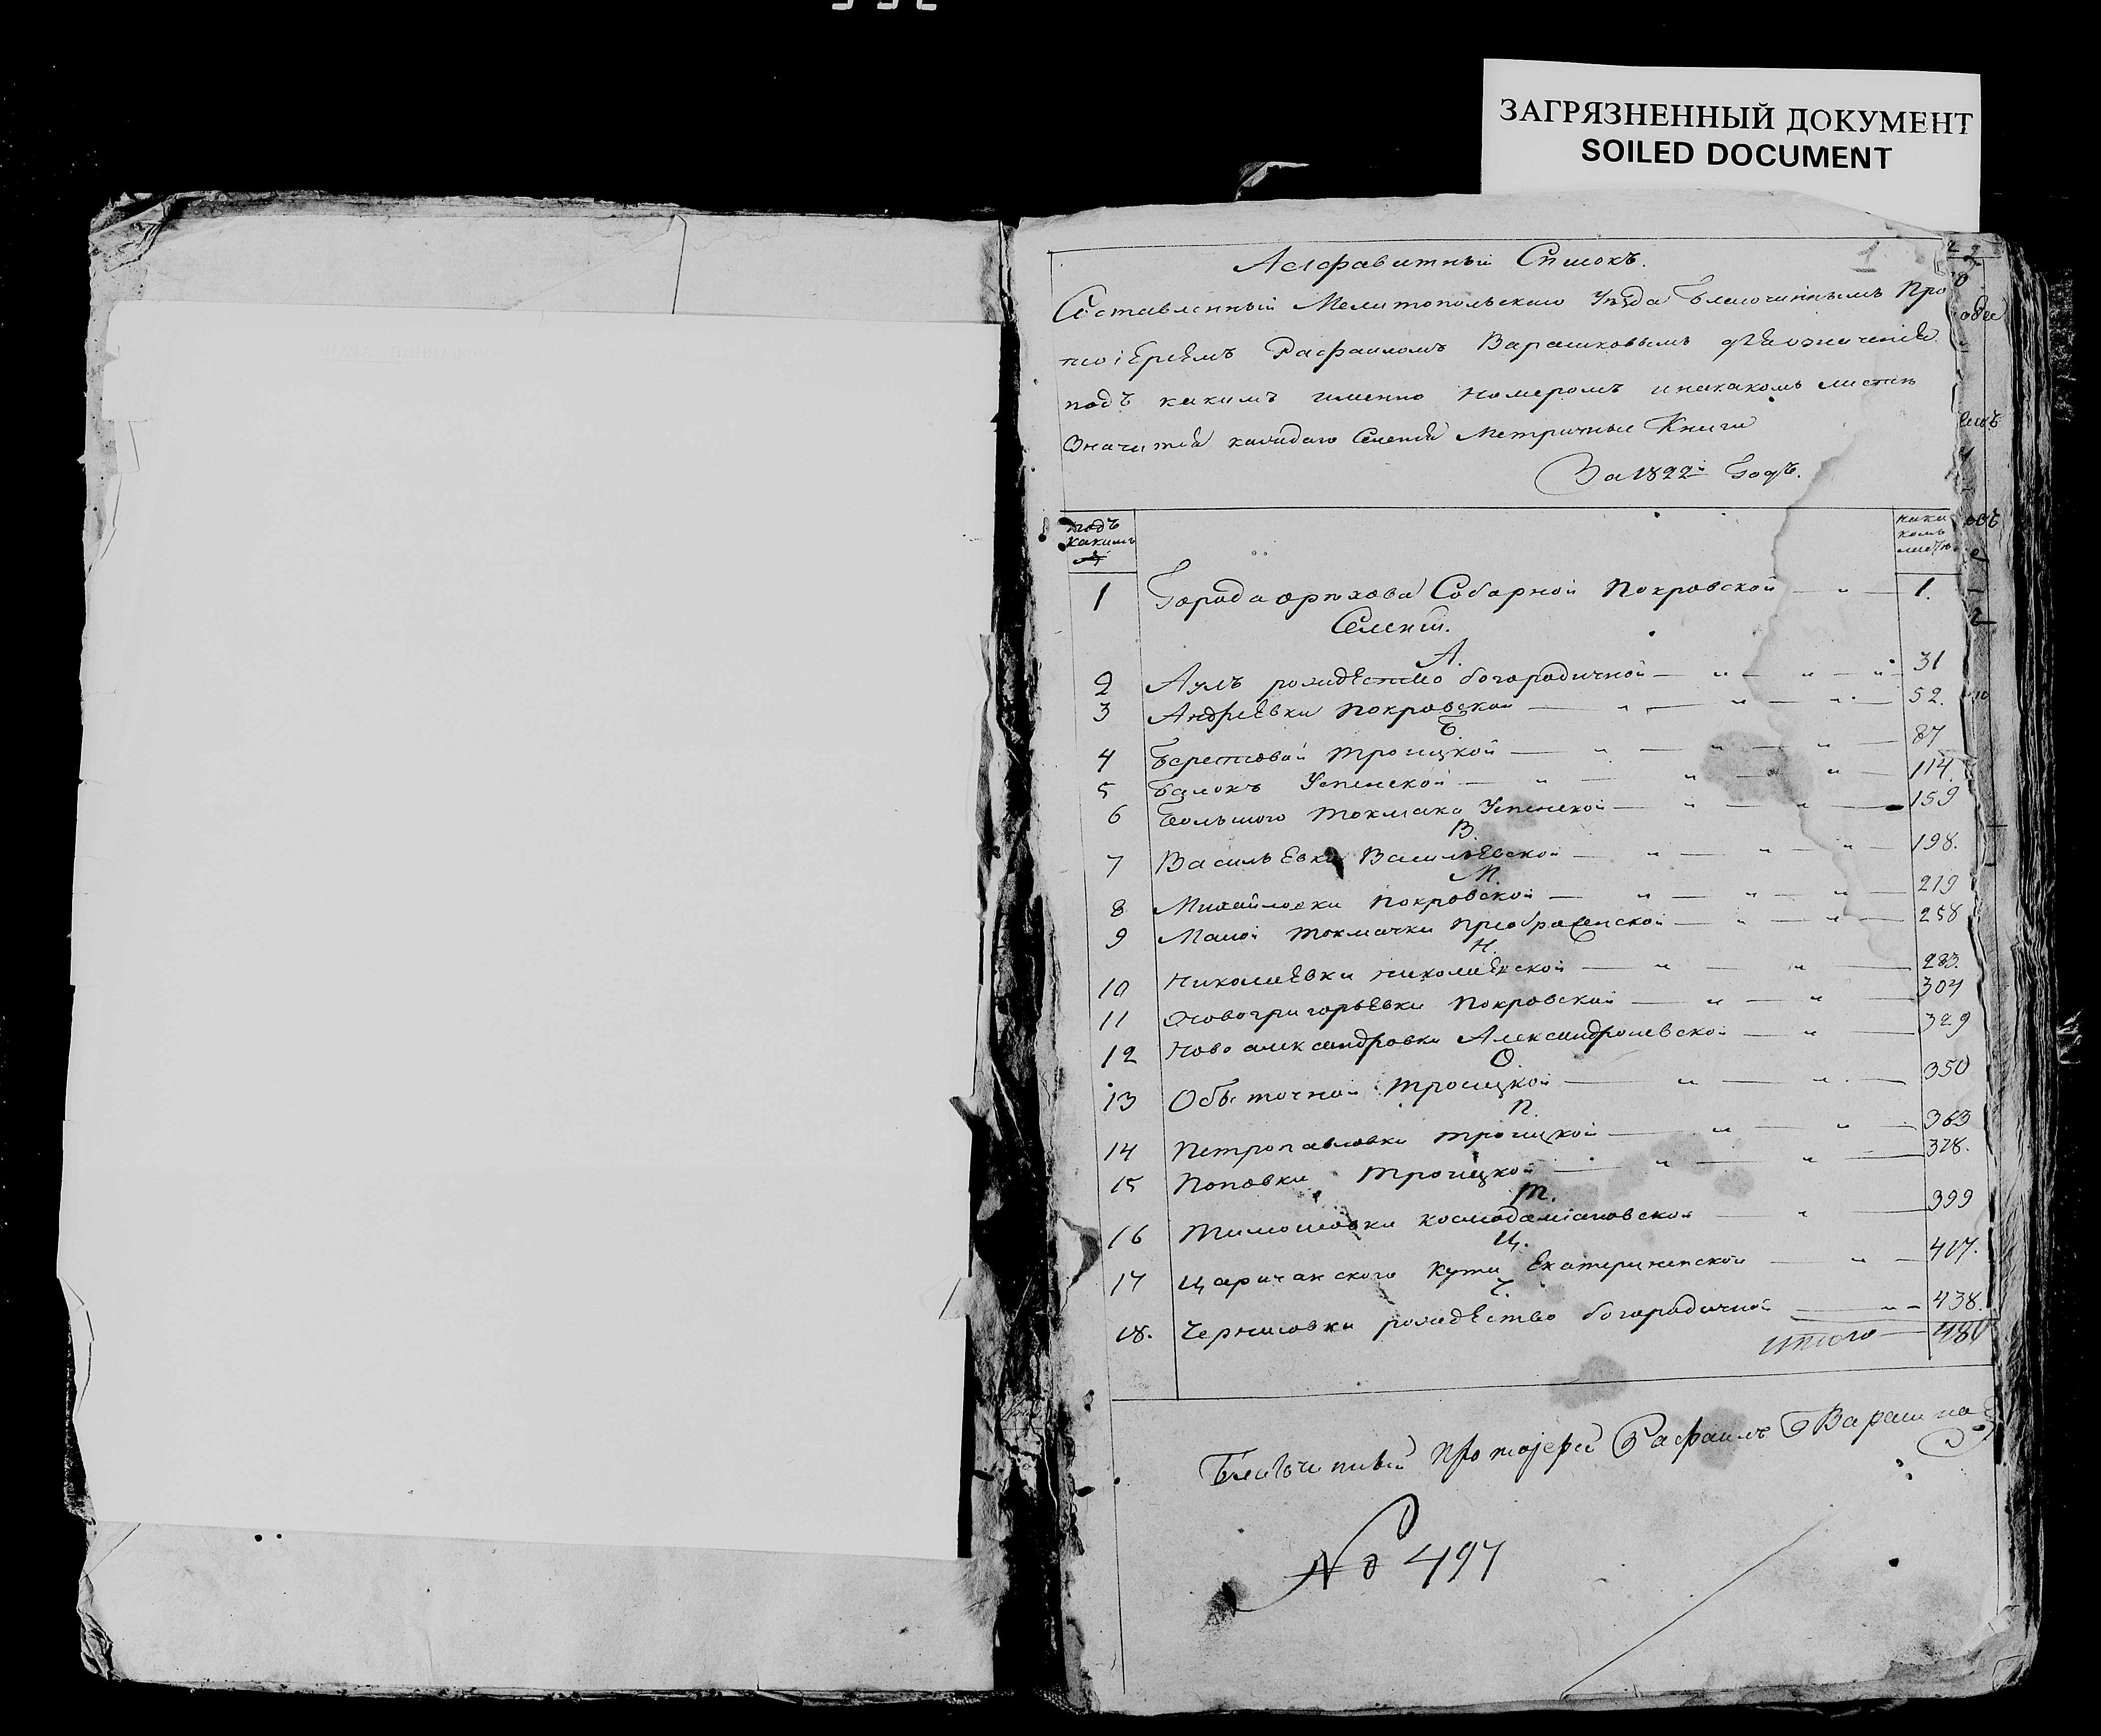 ЗАГРЯЗНЕННЫЙ ДОКУМЕНТ
SOILED DOCUMENT
1.
Алфавитный Списокъ.
Составленный Мелитопольскаго Уѣзда Благочиннымъ Про
тоіереемъ Рафаиломъ Варашковымъ
подъ какимъ именно номеромъ и на какомъ листѣ
Значится каждаго Селенія Метричные Книги
За 1822й Годъ.
подъ какимъ №
на ка комъ листѣ
1 Города Орѣхова Соборной Покровской — „ — 1.
Селеній.
А.
2 Аулъ рождество богородичной — „ — „ — „ 31
3 Андреевки Покровской — „ — „ — „ 52.
Б
4 Берестовой Троицкой — „ — „ — „ — 87
5 Балокъ Успенской — „ — „ — „ — 114.
6 Большого Токмака Успенской — „ — „ — 159
В.
7 Васильевки Васильевской — „ — „ — „ — 198.
М.
8 Михайловки Покровской — „ — „ — „ — 219
9 Малой Токмачки Преображенской — „ — „ — 258
Н.
10 Николаевки Николаевской — „ — „ — 283.
11 Новогригорьевки Покровской — „ — „ — 304
12 Новоалександровки Александроневской — „ — 329
О.
13 Обыточной Троицкой — „ — „ — 350
П.
14 Петропавловки Троицкой — „ — „ — 363
15 Поповки Троицкой — „ — „ — 378.
Т.
16 Тимошовки космодаміановской — „ — 399
Ц.
17 Царичанского Кута Екатерининской — „ — 417.
Ч.
18. Черниговки рождество богородичной — „ — 438.
итого — 480
Благочинный Протоіерей Рафаилъ
№ 497